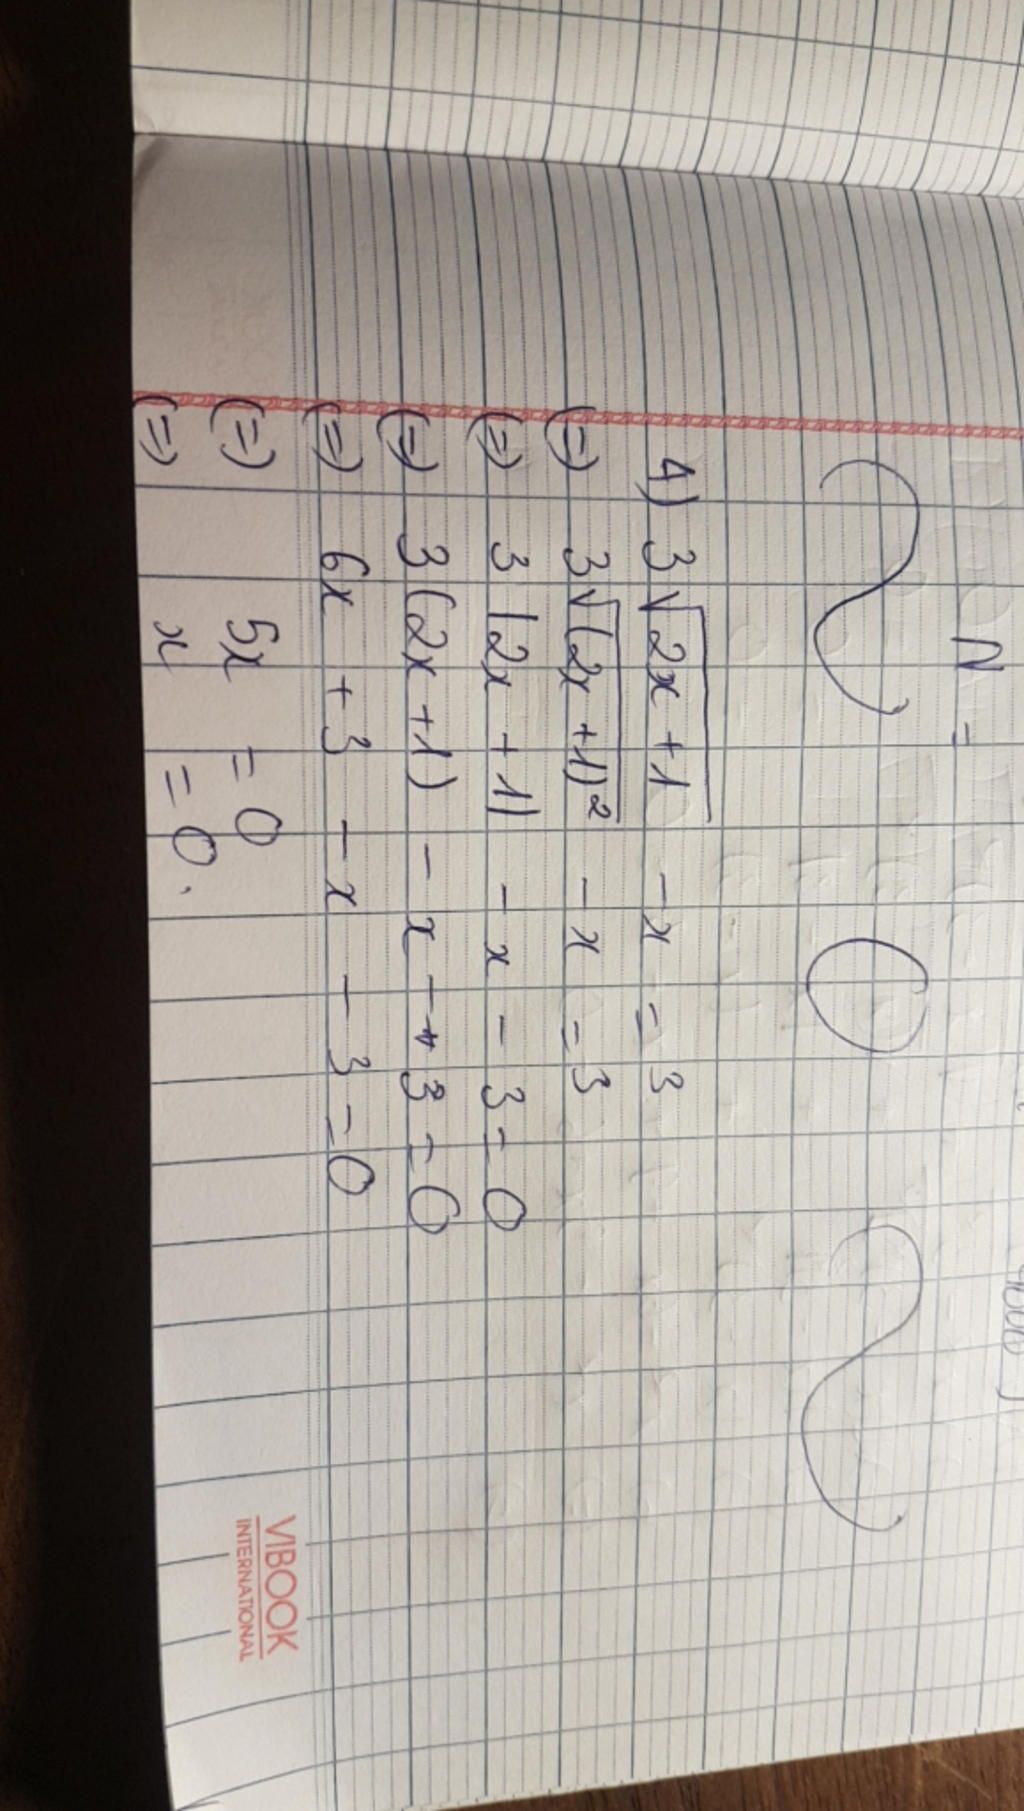 N =
4) 3√(2x + 1) - x = 3
(=) 3√((2x + 1)²) - x = 3
(=) 3 |2x + 1| - x - 3 = 0
(=) 3(2x + 1) - x - 3 = 0
(=) 6x + 3 - x - 3 = 0
(=) 5x = 0
(=) x = 0.
VIBOOK
INTERNATIONAL